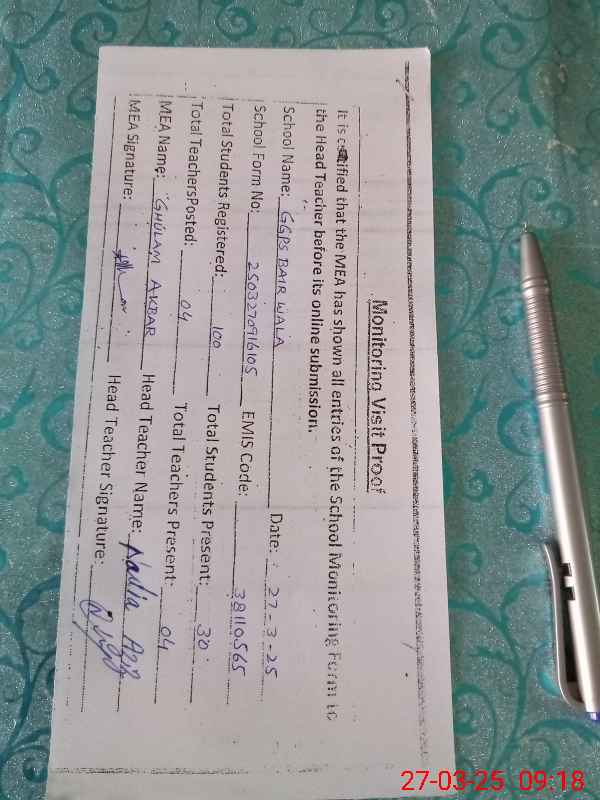 Monitoring Visit Proof
It is certified that the MEA has shown all entries of the School Monitoring Form to
the Head Teacher before its online submission.
School Name: GGPS BAIR WALA Date: 27-3-25
School Form No: 2503270916105 EMIS Code: 38110565
Total Students Registered: 100 Total Students Present: 30
Total TeachersPosted: 04 Total Teachers Present: 04
MEA Name: GHULAM AKBAR Head Teacher Name: Nadia
MEA Signature: Head Teacher Signature:
27-03-25 09:18